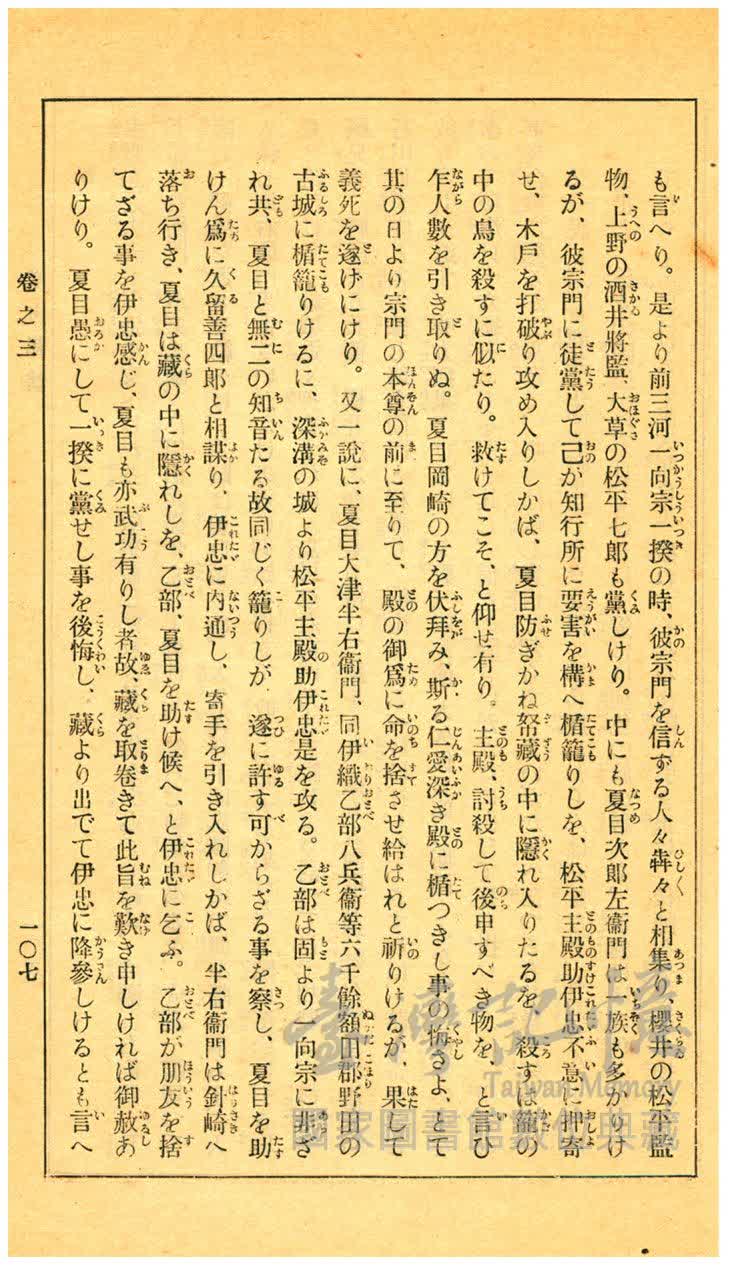 も言へり。是より前三河一向宗一揆の時、彼宗門を信ずる人々犇々と相集り、櫻井の松平監
物、上野の酒井將監、大草の松平七郎も黨しけり。中にも夏目次郎左衞門は一族も多かりけ
るが、彼宗門に徒黨して己が知行所に要害を構へ楯籠りしを、松平主殿助伊忠不意に押寄
せ、木戶を打破り攻め入りしかば、夏目防ぎかね帑藏の中に隱れ入りたるを、殺すは籠の
中の鳥を殺すに似たり。救けてこそ、と仰せ有り。主殿、討殺して後申すべき物を、と言ひ
乍人數を引き取りぬ。夏目岡崎の方を伏拜み、斯る仁愛深き殿に楯つきし事の悔さよ、とて
其の日より宗門の本尊の前に至りて、殿の御爲に命を捨させ給はれと祈りけるが、果して
義死を遂げにけり。又一說に、夏目大津半右衞門、同伊織乙部八兵衞等六千餘額田郡野田の
古城に楯籠りけるに、深溝の城より松平主殿助伊忠是を攻る。乙部は固より一向宗に非ざ
れ共、夏目と無二の知音たる故同じく籠りしが、遂に許す可からざる事を察し、夏目を助
けん爲に久留善四郎と相謀り、伊忠に內通し、寄手を引き入れしかば、半右衞門は針崎へ
落ち行き、夏目は藏の中に隱れしを、乙部、夏目を助け候へ、と伊忠に乞ふ。乙部が朋友を捨
てざる事を伊忠感じ、夏目も亦武功有りし者故、藏を取卷きて此旨を歎き申しければ御赦あ
りけり。夏目愚にして一揆に黨せし事を後悔し、藏より出でて伊忠に降參しけるとも言へ
卷之三
一〇七
臺灣記憶
Taiwan Memory
國家圖書館數位典藏